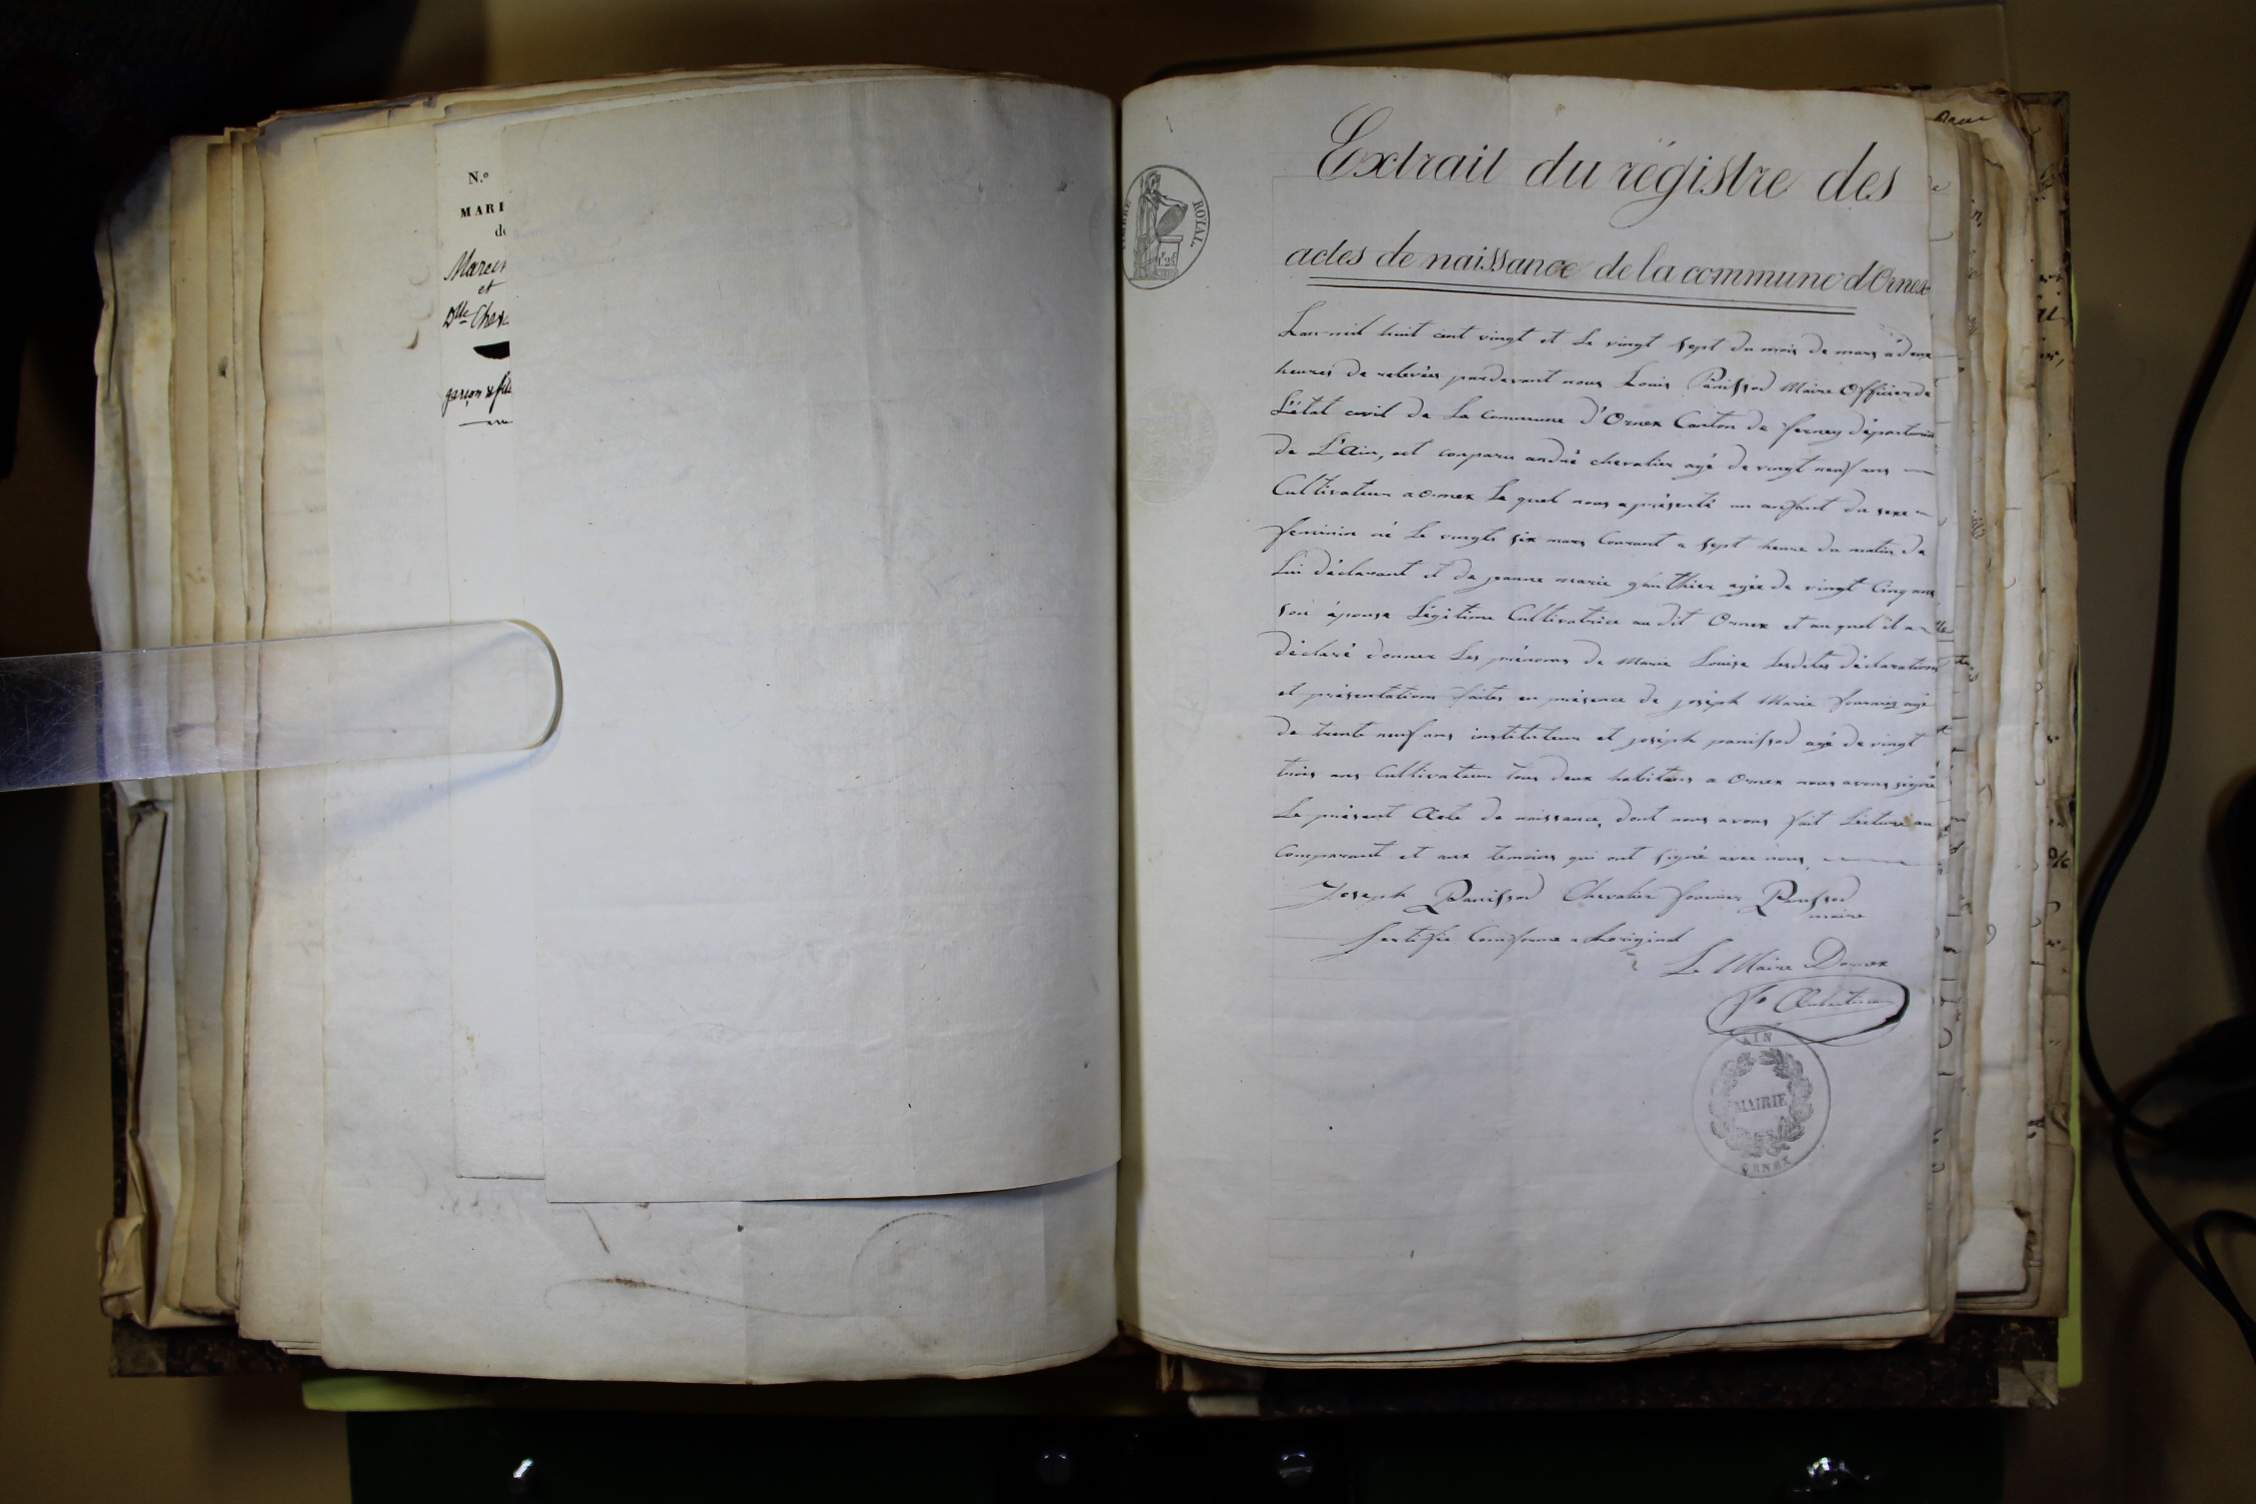 N.º
MARI
de
Marcin
et
Dlle Chev
garçon & fille
TIMBRE ROYAL
1f 25
Extrait du régistre des
actes de naissance de la commune d'Ornex
L'an mil huit cent vingt et le vingt sept du mois de mars à deux
heures de relevées pardevant nous Louis Panissod Maire Officier de
L'état civil de La Commune d'Ornex Canton de ferney département
de L'Ain, est comparu andré chevalier agé de vingt neuf ans
Cultivateur a ornex Le quel nous a présenté un enfant du sexe
feminin né Le vingts six mars Courant a sept heure du matin de
Lui déclarant et de jeanne marie gauthier agée de vingt Cinq ans
son épouse Légitime Cultivatrice au dit Ornex et au quel il a
déclaré donner Les prénoms de Marie Louise Lesdites déclarations
et présentations faites en présence de joseph Marie fournier agé
de trente neuf ans instituteur et joseph panissod agé de vingt
trois ans Cultivateur tous deux habitans a Ornex nous avons signé
Le présent Acte de naissance, dont nous avons fait Lecture au
Comparant et aux temoins qui ont signé avec nous.
Joseph Panissod Chevalier fournier Panissod
maire
Certifié Conforme a Loriginal
Le Maire Dornex
AIN
MAIRIE
ORNEX